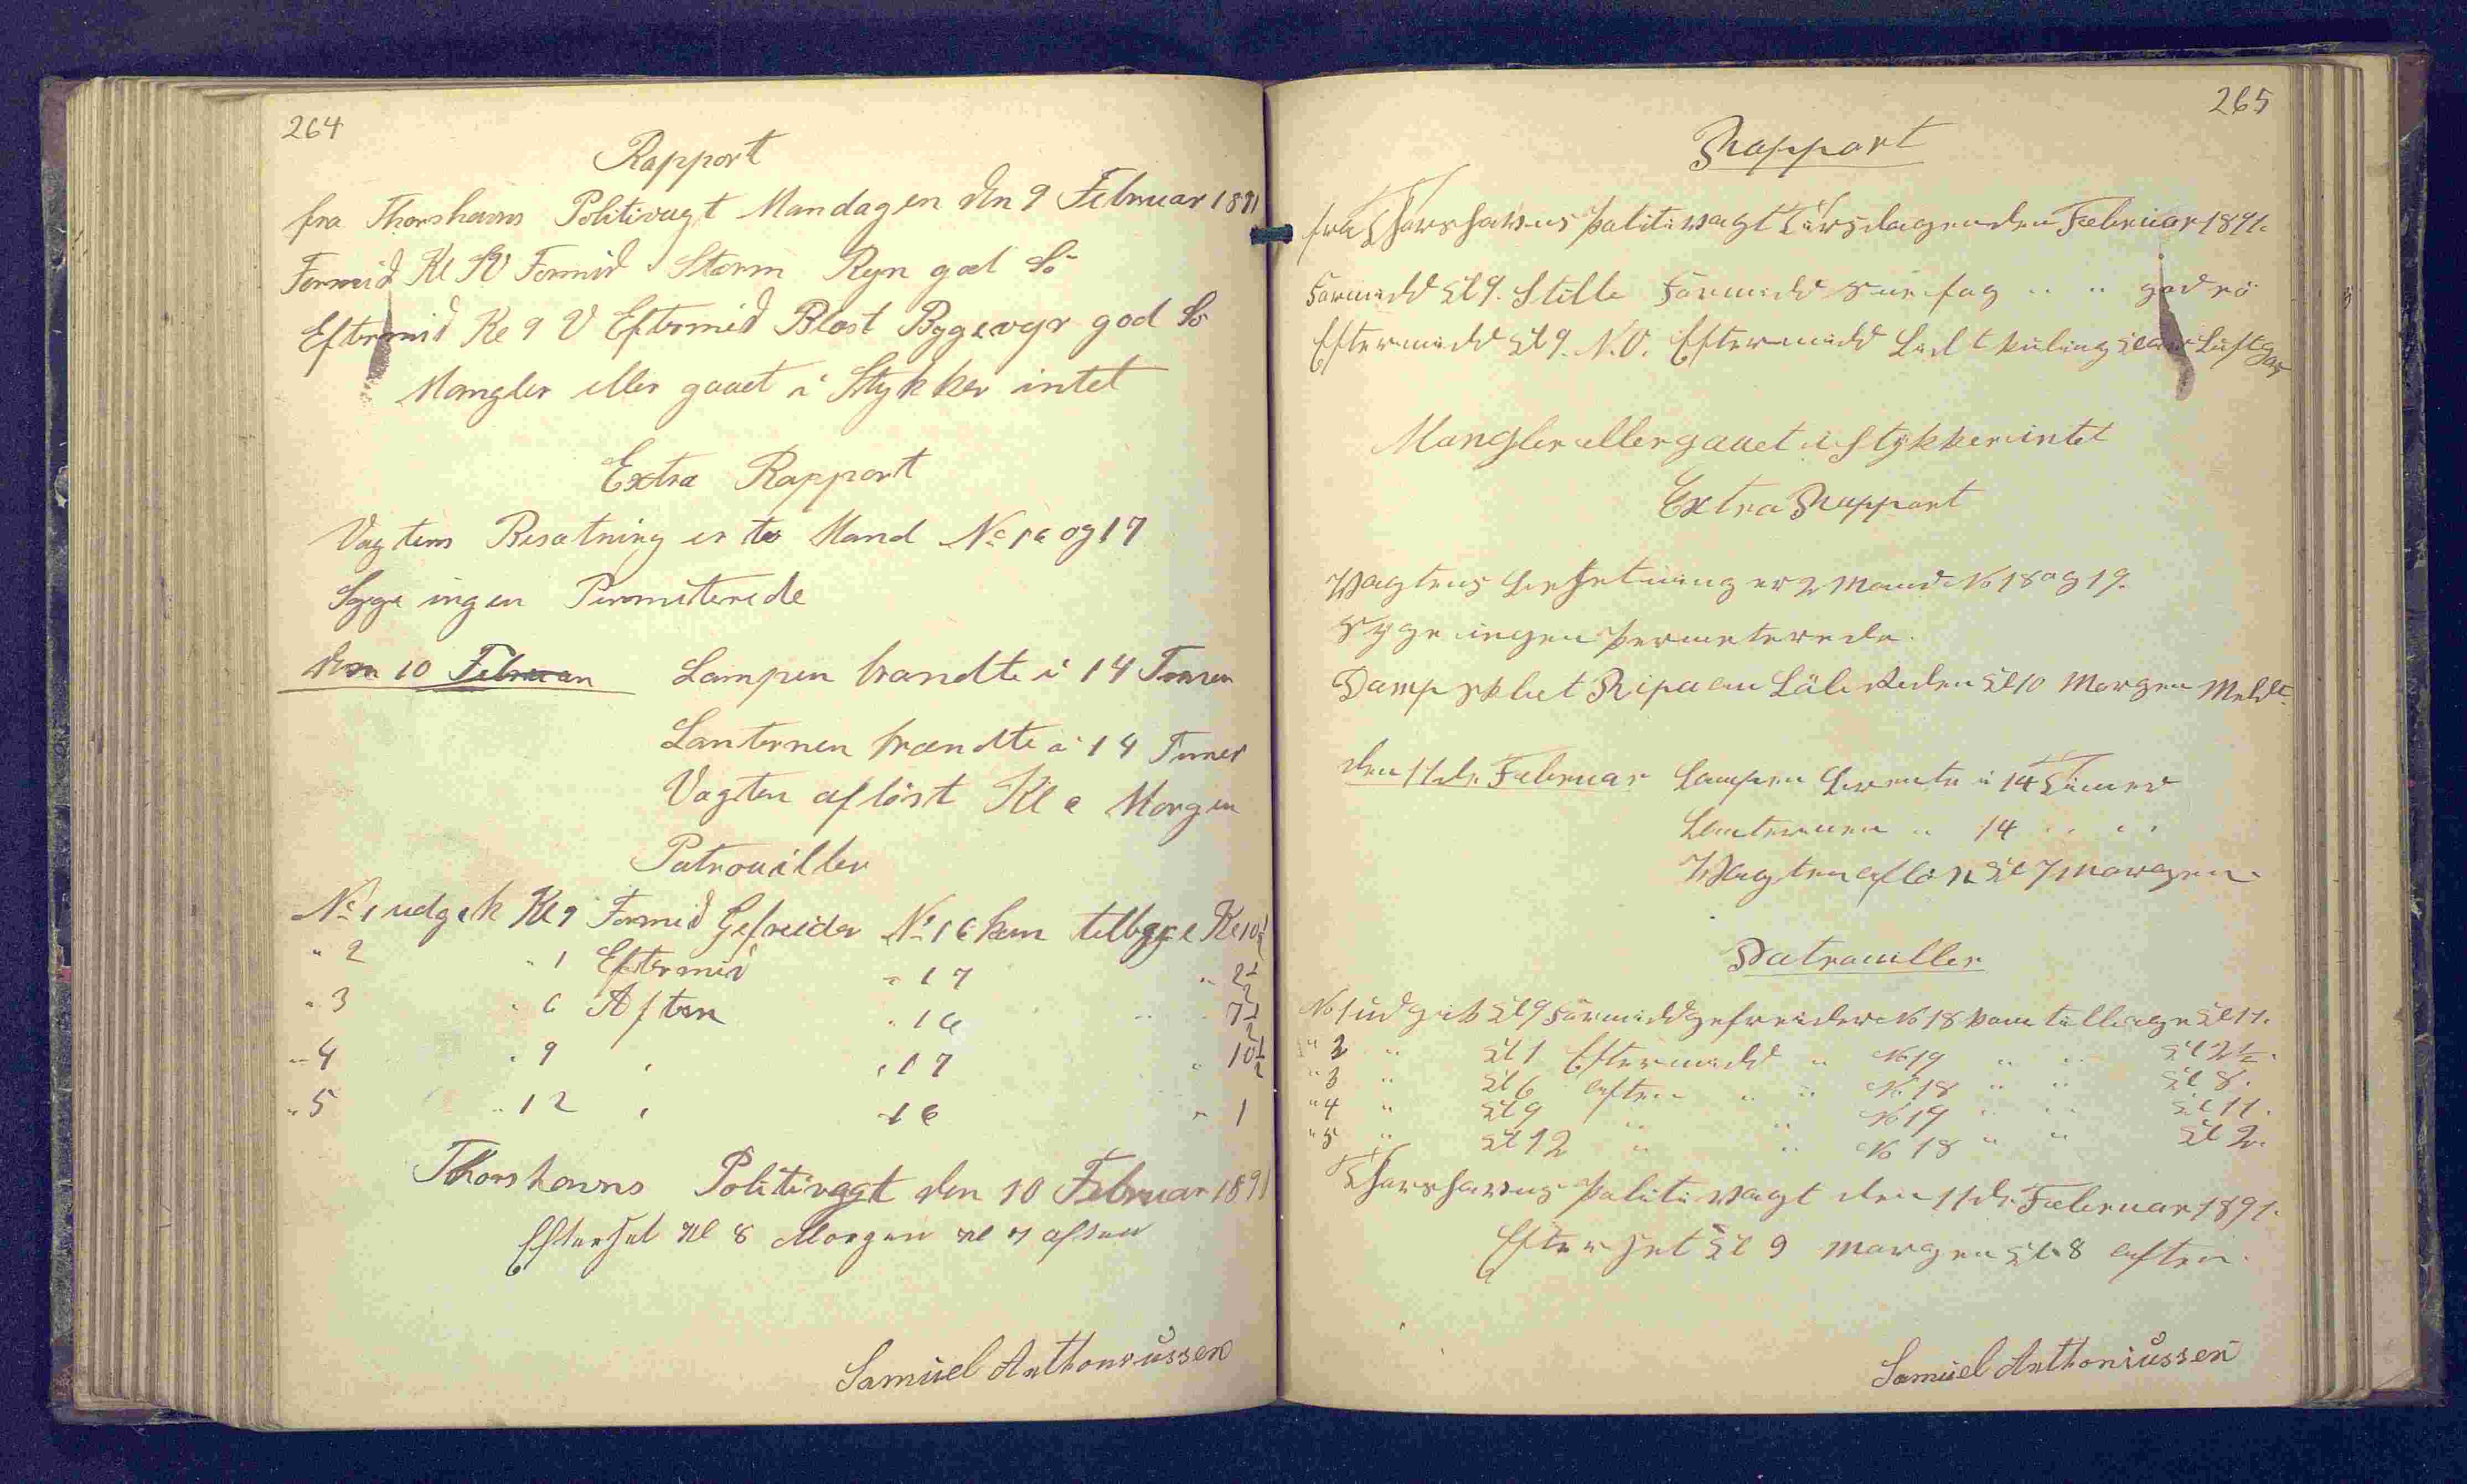 264
Rapport
fra Thorshavns Politivagt Mandagen den 9 Februar 1891
Formid Kl SV Formid Storm Ryn god Sö
Eftermid Kl 9 V Eftermid Blæst Byggevejr god Sö
Mangler eller gaaet i Stykker intet
Extra Rapport
Vagtens Besætning er to Mand No 16 og 17
Syge ingen Permiterede
den 10 Februar Lampen brændte i 14 Timer
Lanternen brændte i 14 Timer
Vagten aflöst Kl Morgen
Patrouiller
No 1 udgik Kl 9 Formid Gefreider No 16 kom tilbage Kl 10½
" 2 " 1 Eftermid " 17 " 2½
" 3 " 6 Aften " 16 " 7½
" 4 " 9 " " 17 " 10½
" 5 " 12 " 16 " 1
Thorshavns Politivagt den 10 Februar 1891
Efterset Kl 8 Morgen Kl 7 aften
Samuel Anthoniussen
265
Rapport
fra Thorshavns Politivagt Tirsdagen den Februar 1891.
Formidd Kl 9. Stille Formidd " " god sö
Eftermidd Kl 9. N.O. Eftermidd Lidt Kuling klar Luft
Mangler eller gaaet i Stykker intet
Extra Rapport
Wagtens Besetning er 2 Mand No 18 og 19.
Syge ingen Permeterede.
Dampskbet Ripa Kl 10 Morgen Meldt.
den 11de Februar Lampen brente i 14 Timer
Lanternen " 14 " "
Wagten aflöst Kl 7 Morgen.
Patrouiller
No 1 udgik Kl 9 Formidd gefreider No 18 kom tilbage Kl 11.
" 2 " Kl 1 Eftermidd " No 19 " " Kl 2½.
" 3 " Kl 6 aften " " No 18 " " Kl 8.
" 4 " Kl 9 " " No 19 " " Kl 11.
" 5 " Kl 12 " " No 18 " " Kl 2.
Thorshavns Politivagt den 11de Februar 1891.
Efterset Kl 9 Morgen Kl 8 aften.
Samuel Anthoniussen